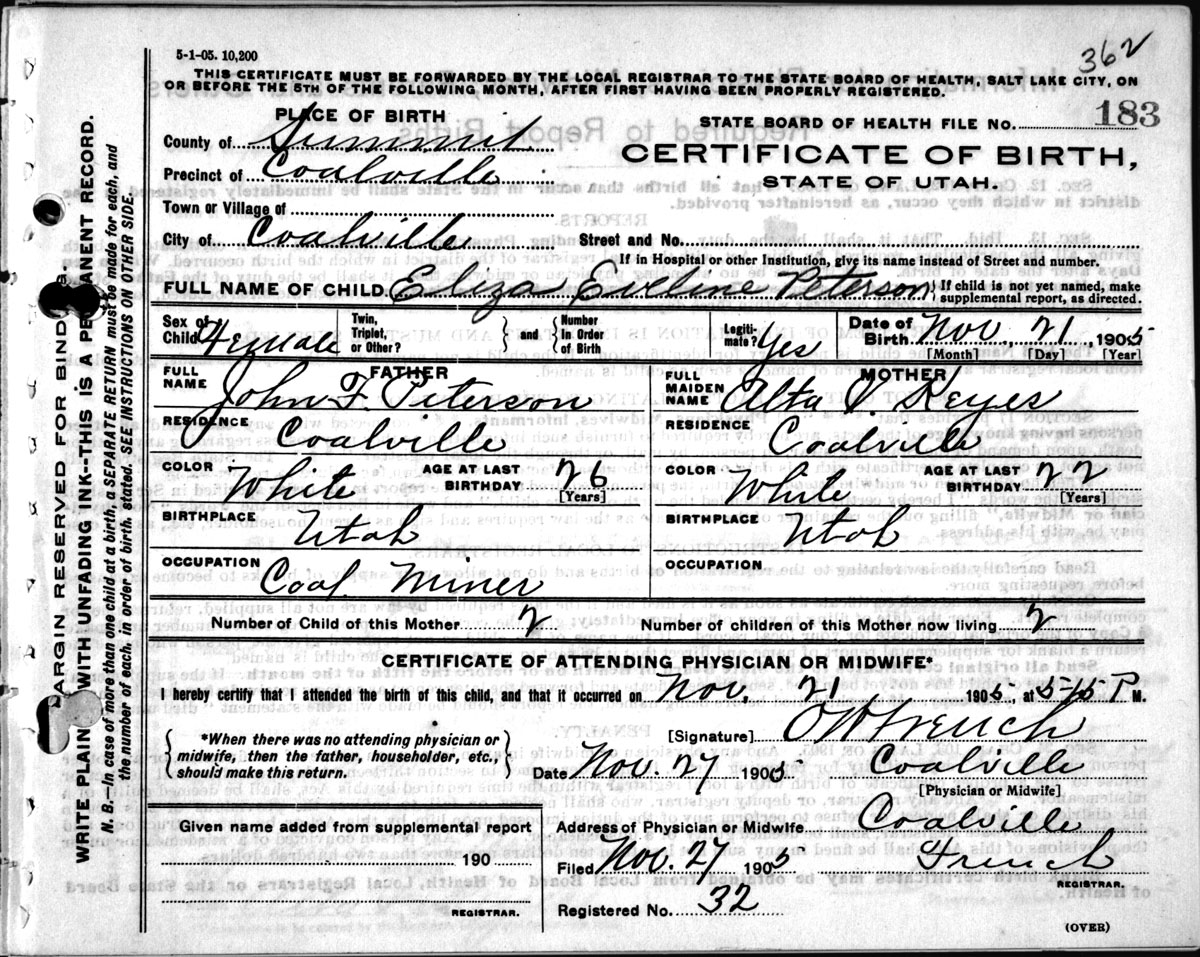 5-1-05. 10,200
362
THIS CERTIFICATE MUST BE FORWARDED BY THE LOCAL REGISTRAR TO THE STATE BOARD OF HEALTH, SALT LAKE CITY, ON
OR BEFORE THE 5TH OF THE FOLLOWING MONTH, AFTER FIRST HAVING BEEN PROPERLY REGISTERED.
PLACE OF BIRTH
STATE BOARD OF HEALTH FILE NO. 183
County of Summit
CERTIFICATE OF BIRTH,
Precinct of Coalville
STATE OF UTAH.
Town or Village of
City of Coalville Street and No.
If in Hospital or other Institution, give its name instead of Street and number.
FULL NAME OF CHILD Eliza Eveline Peterson { If child is not yet named, make supplemental report, as directed.
Sex of Child Female Twin, Triplet, or Other? } and { Number In Order of Birth Legitimate? Yes Date of Birth Nov. 21, 1905
[Month] [Day] [Year]
FATHER
MOTHER
FULL NAME John F. Peterson
FULL MAIDEN NAME Alta V. Keyes
RESIDENCE Coalville
RESIDENCE Coalville
COLOR White AGE AT LAST BIRTHDAY 26 [Years]
COLOR White AGE AT LAST BIRTHDAY 22 [Years]
BIRTHPLACE Utah
BIRTHPLACE Utah
OCCUPATION Coal Miner
OCCUPATION
Number of Child of this Mother 2 Number of children of this Mother now living 2
CERTIFICATE OF ATTENDING PHYSICIAN OR MIDWIFE*
I hereby certify that I attended the birth of this child, and that it occurred on Nov. 21 1905, at 5-15 P M.
{ *When there was no attending physician or midwife, then the father, householder, etc., should make this return. }
[Signature] French
Date Nov. 27 1905 Coalville
[Physician or Midwife]
Given name added from supplemental report
190
REGISTRAR.
Address of Physician or Midwife Coalville
Filed Nov. 27 1905 French
REGISTRAR.
Registered No. 32
(OVER)
MARGIN RESERVED FOR BINDING.
WRITE PLAINLY WITH UNFADING INK--THIS IS A PERMANENT RECORD.
N. B.—In case of more than one child at a birth, a SEPARATE RETURN must be made for each, and
the number of each, in order of birth, stated. SEE INSTRUCTIONS ON OTHER SIDE.